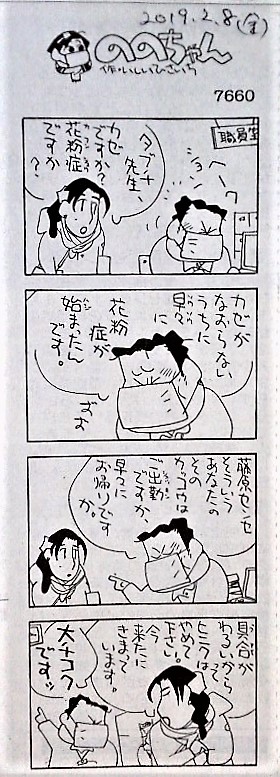 2019.2.8(金)
ののちゃん
作・いしいひさいち
7660
職員室
タブチ
先生、
カゼ
ですか?
花粉症
ですか
?
カゼが
なおらない
うちに
早々に
花粉症が
始まったん
です。
ずず
藤原センセ
そういう
あなたの
その
カッコウは
ご出勤
ですか、
早々に
お帰りです
か。
具合が
わるいから
って
ヒニクは
やめて
下さい。
今
来たに
きまって
います。
大チコク
ですッ